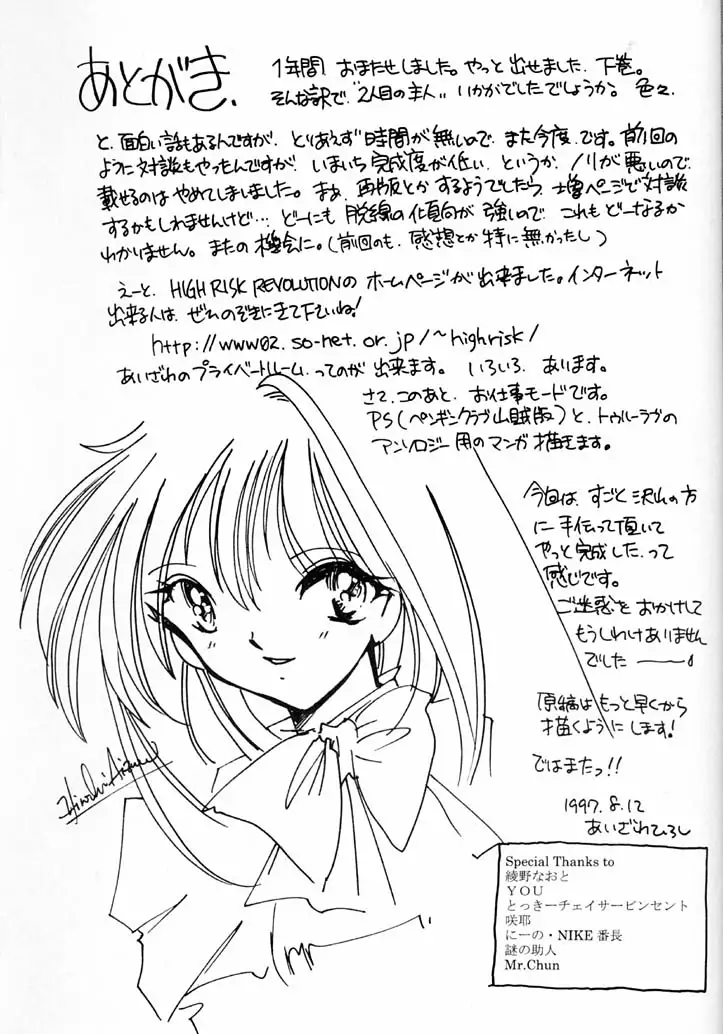 あとがき、
1年間、おまたせしました。やっと出せました、下巻。
そんな訳で、"2人目の主人"、いかがでしたでしょうか。色々
と、面白い話もあるんですが、とりあえず時間が無いので、また今度です。前回の
ように対談もやったんですが、いまいち完成度が低い、というか、ノリが悪いので、
載せるのはやめてしまいました。まあ、再販とかするようでしたら、増ページで対談
するかもしれませんけど…、どーにも脱線の傾向が強いので、これもどーなるか
わかりません。またの機会に。(前回のも、感想とか特に無かったし)
えーと、HIGH RISK REVOLUTIONのホームページが出来ました。インターネット
出来る人は、ぜひのぞきにきて下さいね!
http://www02.so-net.or.jp/~highrisk/
あいざわのプライベートルーム、ってのが出来ます。いろいろ、あります。
さて、このあと、お仕事モードです。
PS(ペンギンクラブ山賊版)と、トゥルーラヴの
アンソロジー用のマンガ描きます。
今回は、すごく沢山の方
に手伝って頂いて
やっと完成した、って
感じです。
ご迷惑をおかけして
もうしわけありません
でした──。
原稿はもっと早くから
描くようにします!
ではまたっ!!
1997.8.12
あいざわひろし
Hiroshi Aizawa
Special Thanks to
綾野なおと
YOU
とっきーチェイサービンセント
咲耶
にーの・NIKE番長
謎の助人
Mr.Chun